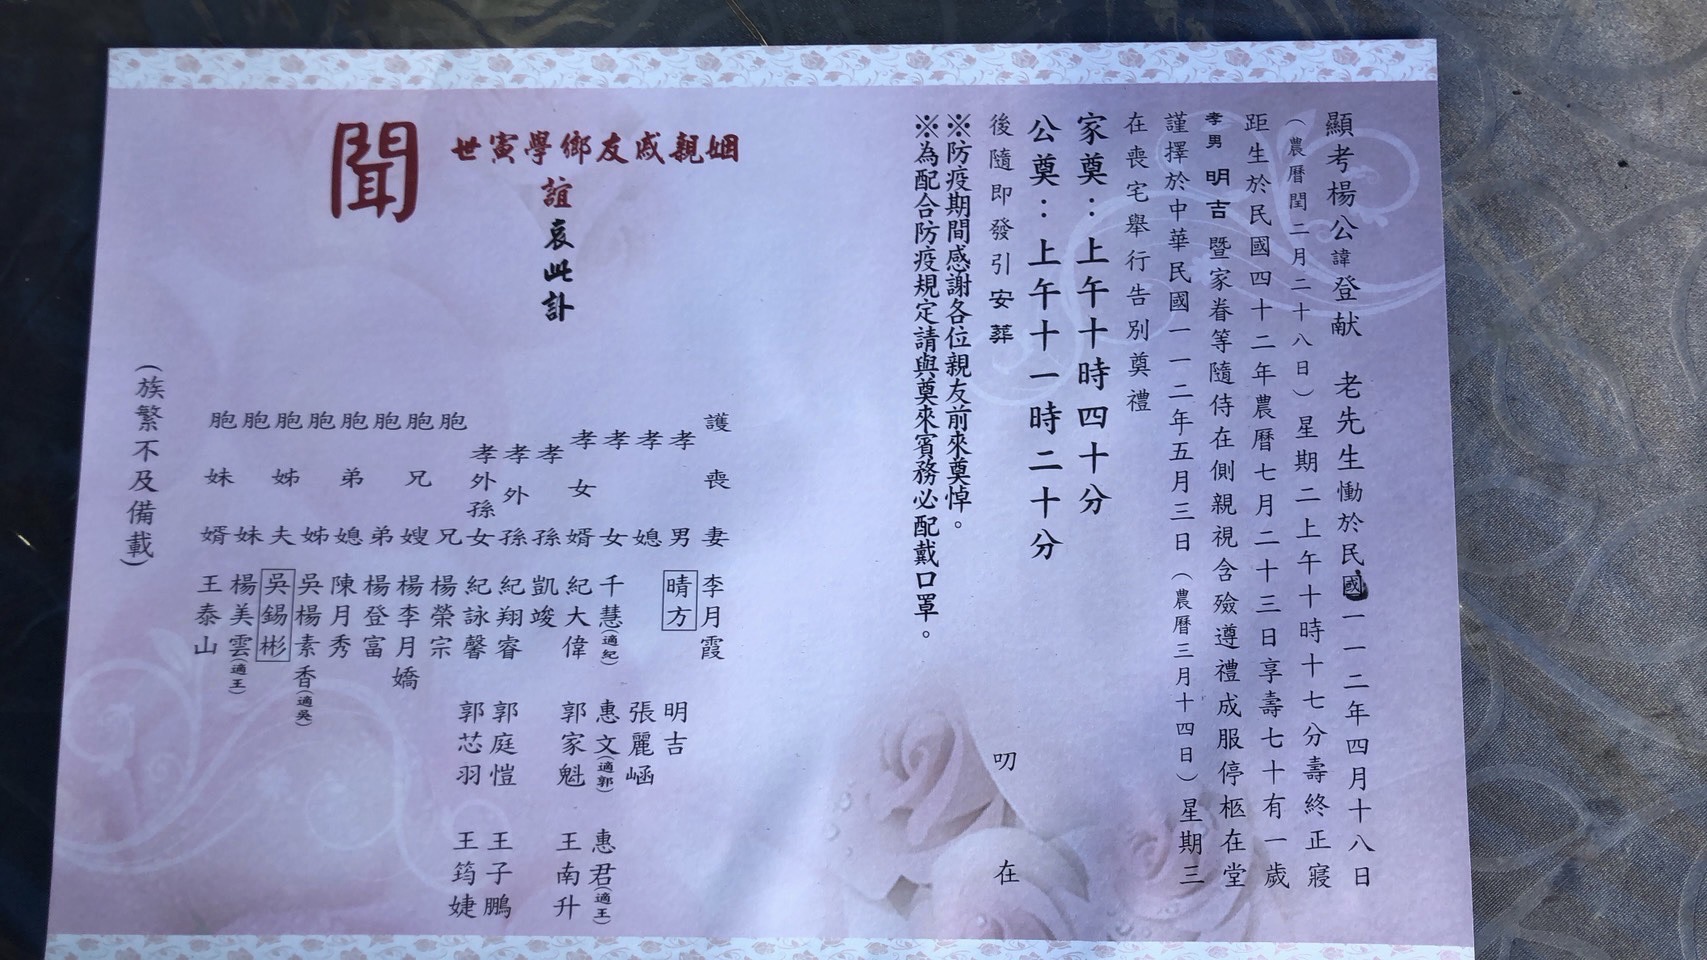 顯考楊公諱登献 老先生慟於民國一一二年四月十八日
（農曆閏二月二十八日）星期二上午十時十七分壽終正寢
距生於民國四十二年農曆七月二十三日享壽七十有一歲
孝男 明吉 暨家眷等隨侍在側親視含殮遵禮成服停柩在堂
謹擇於中華民國一一二年五月三日（農曆三月十四日）星期三
在喪宅舉行告別奠禮
家奠：上午十時四十分
公奠：上午十一時二十分
後隨即發引安葬 叨 在
※防疫期間感謝各位親友前來奠悼。
※為配合防疫規定請與奠來賓務必配戴口罩。
姻親戚友鄉學寅世
誼哀此訃
聞
護喪妻 李月霞
孝男 晴方 明吉
孝媳 張麗崡
孝女 千慧(適紀) 惠文(適郭) 惠君(適王)
孝女婿 紀大偉 郭家魁 王南升
孝孫 凱竣
孝外孫 紀翔睿 郭庭愷 王子鵬
孝外孫女 紀詠馨 郭芯羽 王筠婕
胞兄 楊榮宗
胞兄嫂 楊李月嬌
胞弟 楊登富
胞弟媳 陳月秀
胞姊 吳楊素香(適吳)
胞姊夫 吳錫彬
胞妹 楊美雲(適王)
胞妹婿 王泰山
（族繁不及備載）